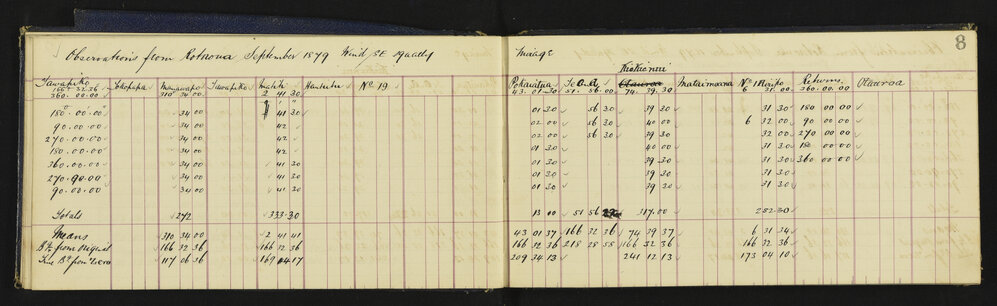 Observations from Rotuona September 1879 Wind SE gusty
Image
8
Kiekie nui
Tawapiko Tokopapa Mawapiko Tawapiko Matiti Huntutu No. 19 Pokaiatua Te O.A. Mataimoana No. 1 Rehoms Otauroa
166.32.36 2 41 30 43.01.30 51. 56 00 74. 39.30 6 31.00 360.00.00
360.00.00 310 34.00
180.00.00 34 00 41 30 01 30 56 30 39 30 31 30 180 00 00
90.00.00 34 00 42 02 00 56 30 40 00 6 32 00 90 00 00
270.00.00 34 00 42 02 00 56 30 39 30 32 00 270 00 00
180.00.00 34 00 42 01 30 40 00 31 30 180 00 00
360.00.00 34 00 41 30 01 30 39 30 31 30 360 00 00
270.90.00 34 00 41 30 01 30 39 30 31 30
90.00.00 34 00 41 30 01 30 39 30 31 30
Totals 272 333.30 13 00 51 56 317.00 252.30
Means 310 34 00 2 41 41 43 01 37 166 32 36 74 39 37 6 31 34
Bg. from Original 166 32 36 166 32 36 166 32 36 218 28 55 166 32 36 166 32 36
True Bg. from Zero 117 06 36 169 04 17 209 34 13 241 12 13 173 04 10